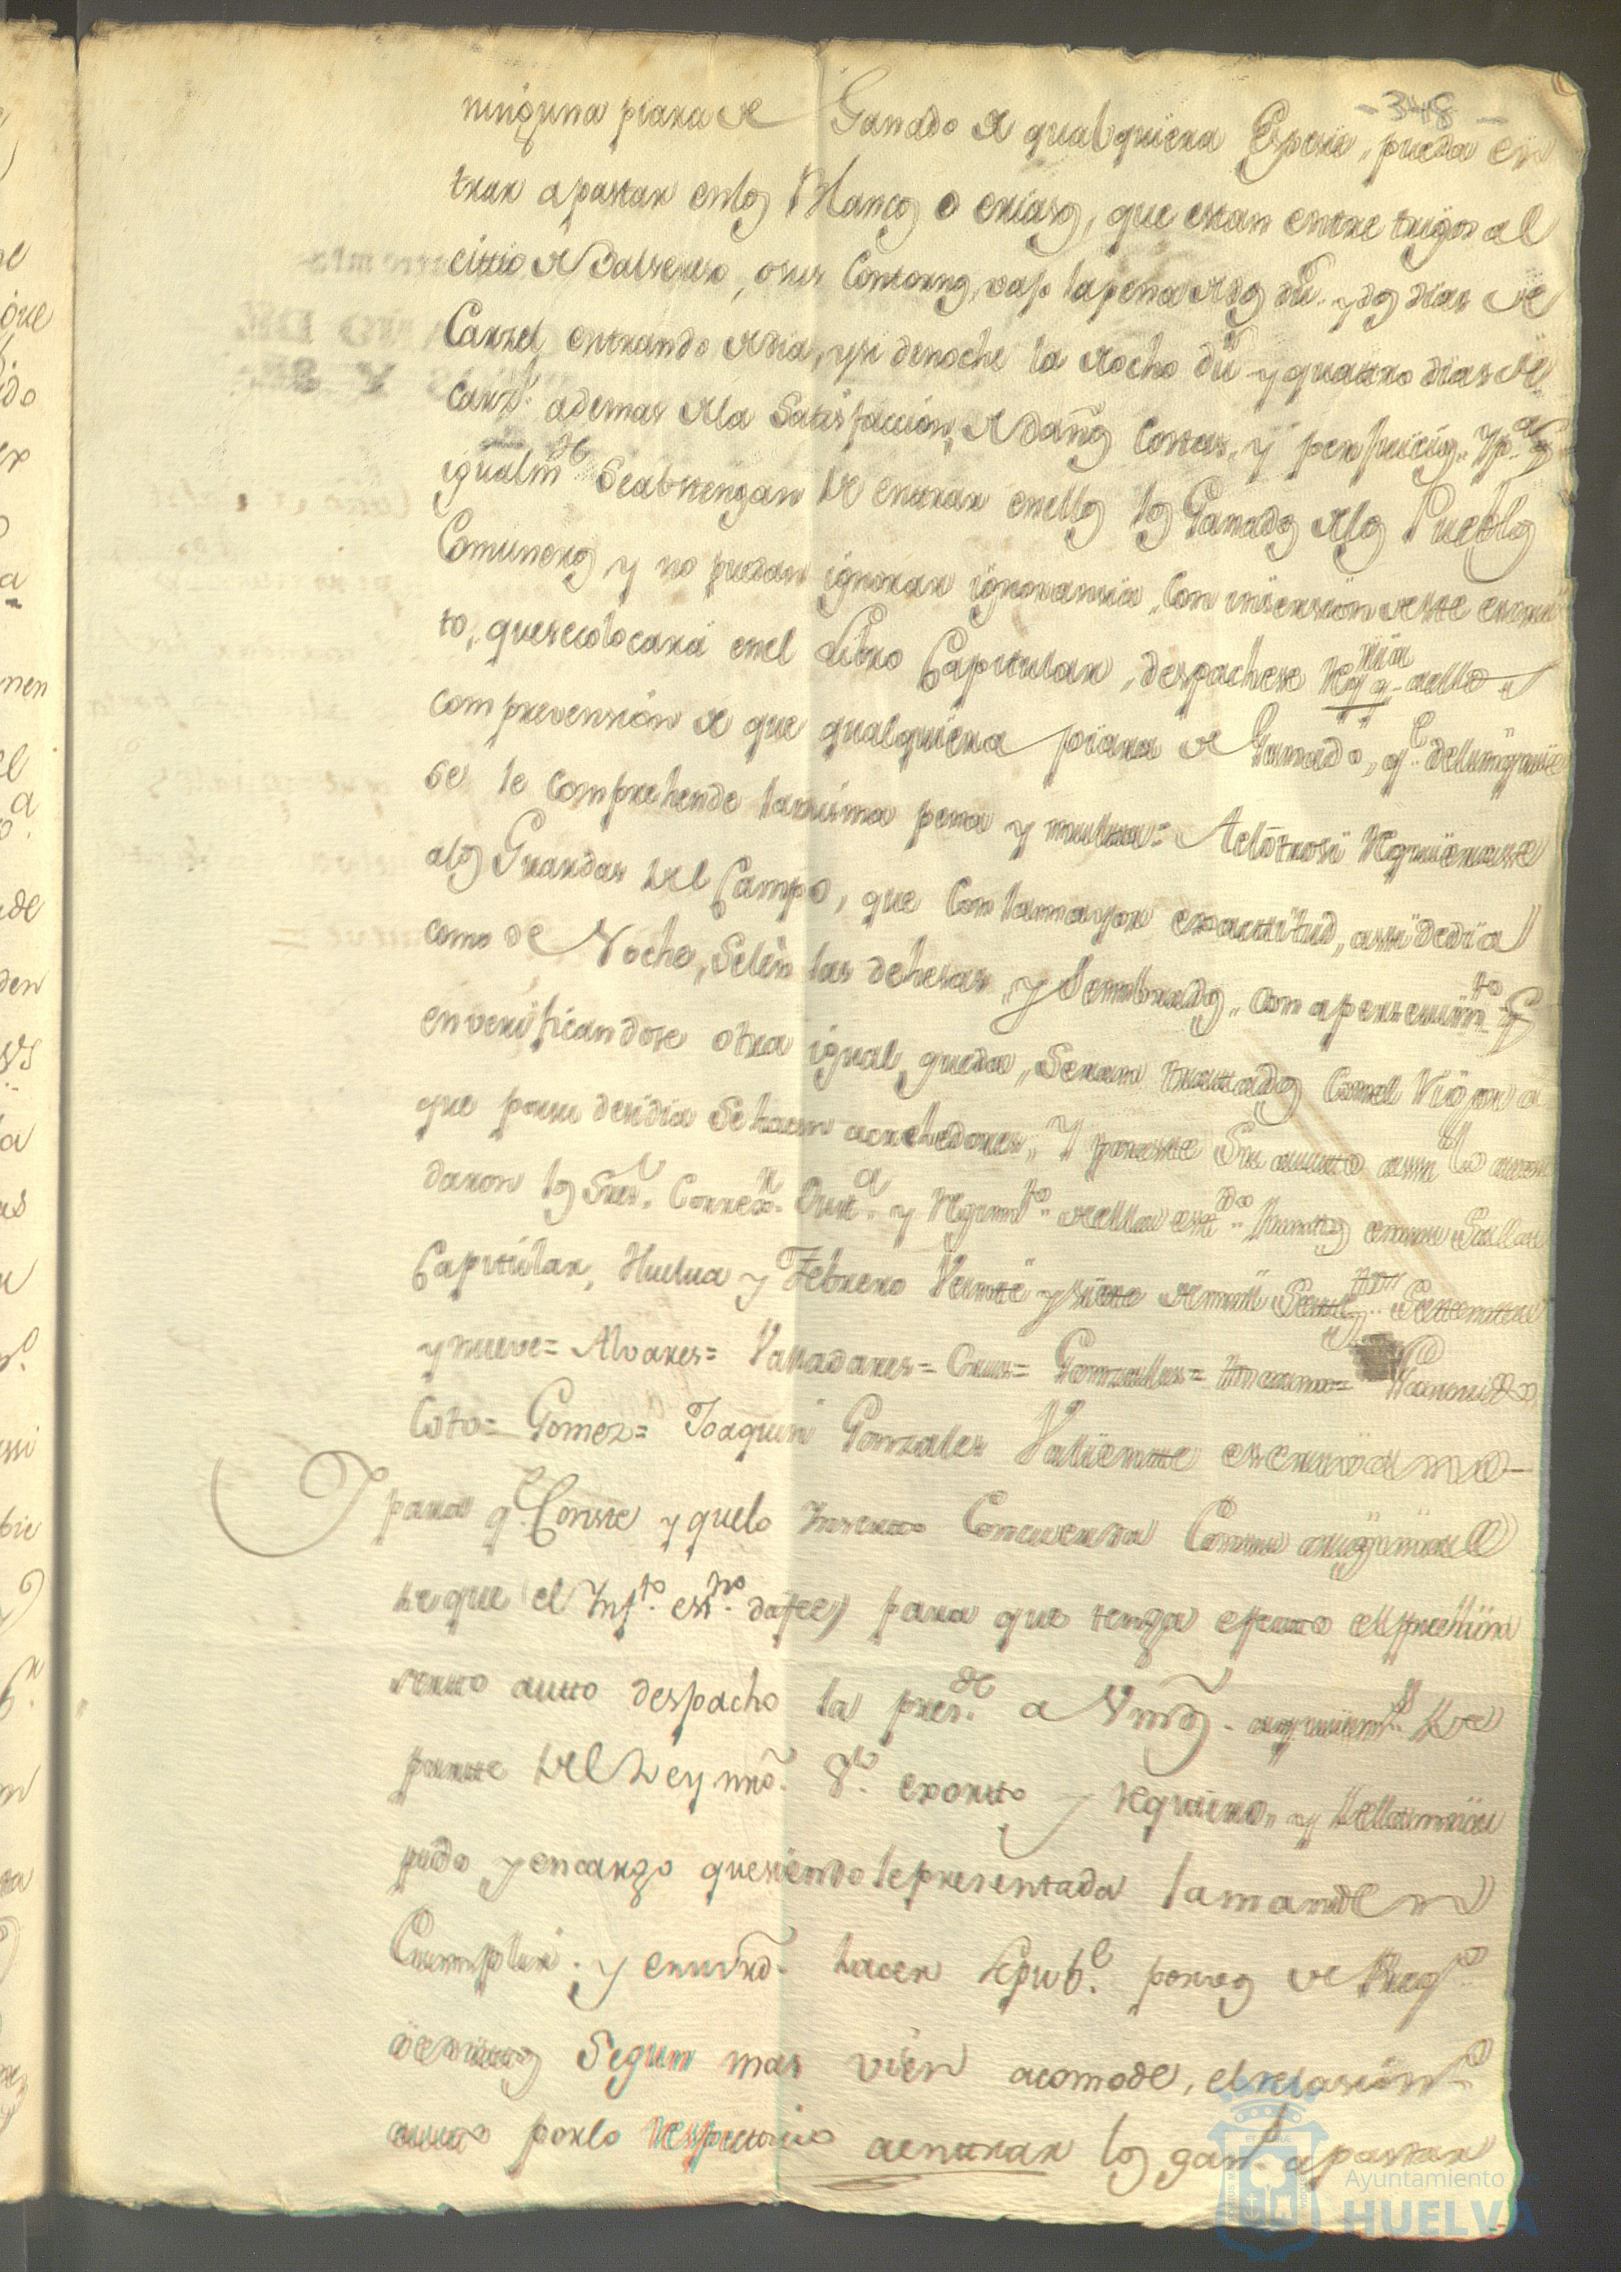 -348-
ninguna piara de Ganado de qualquiera Espesie, pueda en
trar apastar enlos Mancos o eriasos, que estan entre trigos al
cittio de Valseruo, osus Contornos, vajo lapena de dos du.ˢ y dos dias de
Carzel entrando de dia, y si denoche la de ocho du.ˢ y quattro dias de
Carz.ˡ ademas de la Satisfaccion, de Daños Costas, y perjuicios. Y p.ª q.
igualm.te Se abstengan de entrar enellos los Ganados de los Pueblos
Comuneros, y no puedan ignorar ignoranzia, Con insersion de este escri
to, que se colocará en el Libro Capitular, despachese Reqq.ria aello
comprevension de que qualquiera piara de Ganado, q.e delinquie
se le Comprehende lamisma pena y multta= Aelotrosi Requierase
alos Guardas del Campo, que Con lamayor exacttitud, assi dedia
como de Noche, Selen las dehesas, y Sembrados, con apersevim.to q.
enverificandose otra igual queda, Seran trattados Conel Vigor a
que por su desidia Se hacen acrehedores, Y poreste Su autto assi lo acor
daron los S.res Correx.r Just.ª y Regim.to de esta est.do Junttos en su Sala
Capitular, Huelva y Febrero Veintte y siette de mill Settez.tos Settentta
y nueve= Alvares= Valladares= Cruz= Gonzales=
Coto= Gomez= Joaquin Gonzales Valientte escrivano
Y para q.e Conste y que lo Insertto Concuerda Con su origginal
de que el Inf.to ess.no da fee) para que tenga efectto el preins
sertto autto despacho la pres.te a Vmds. aquienes de
parte del Rey nro. S.r exortto y requiero, y de la mia
pido y encargo que siendole presentada la manden
Cumplir, y en su vrd. hacer Se pub.e por voz de Preg.o
oedicttos Segun mas vien acomode, el relasion.do
autto por lo respectivo aentrar los gan.s apastar
Ayuntamiento de
HUELVA